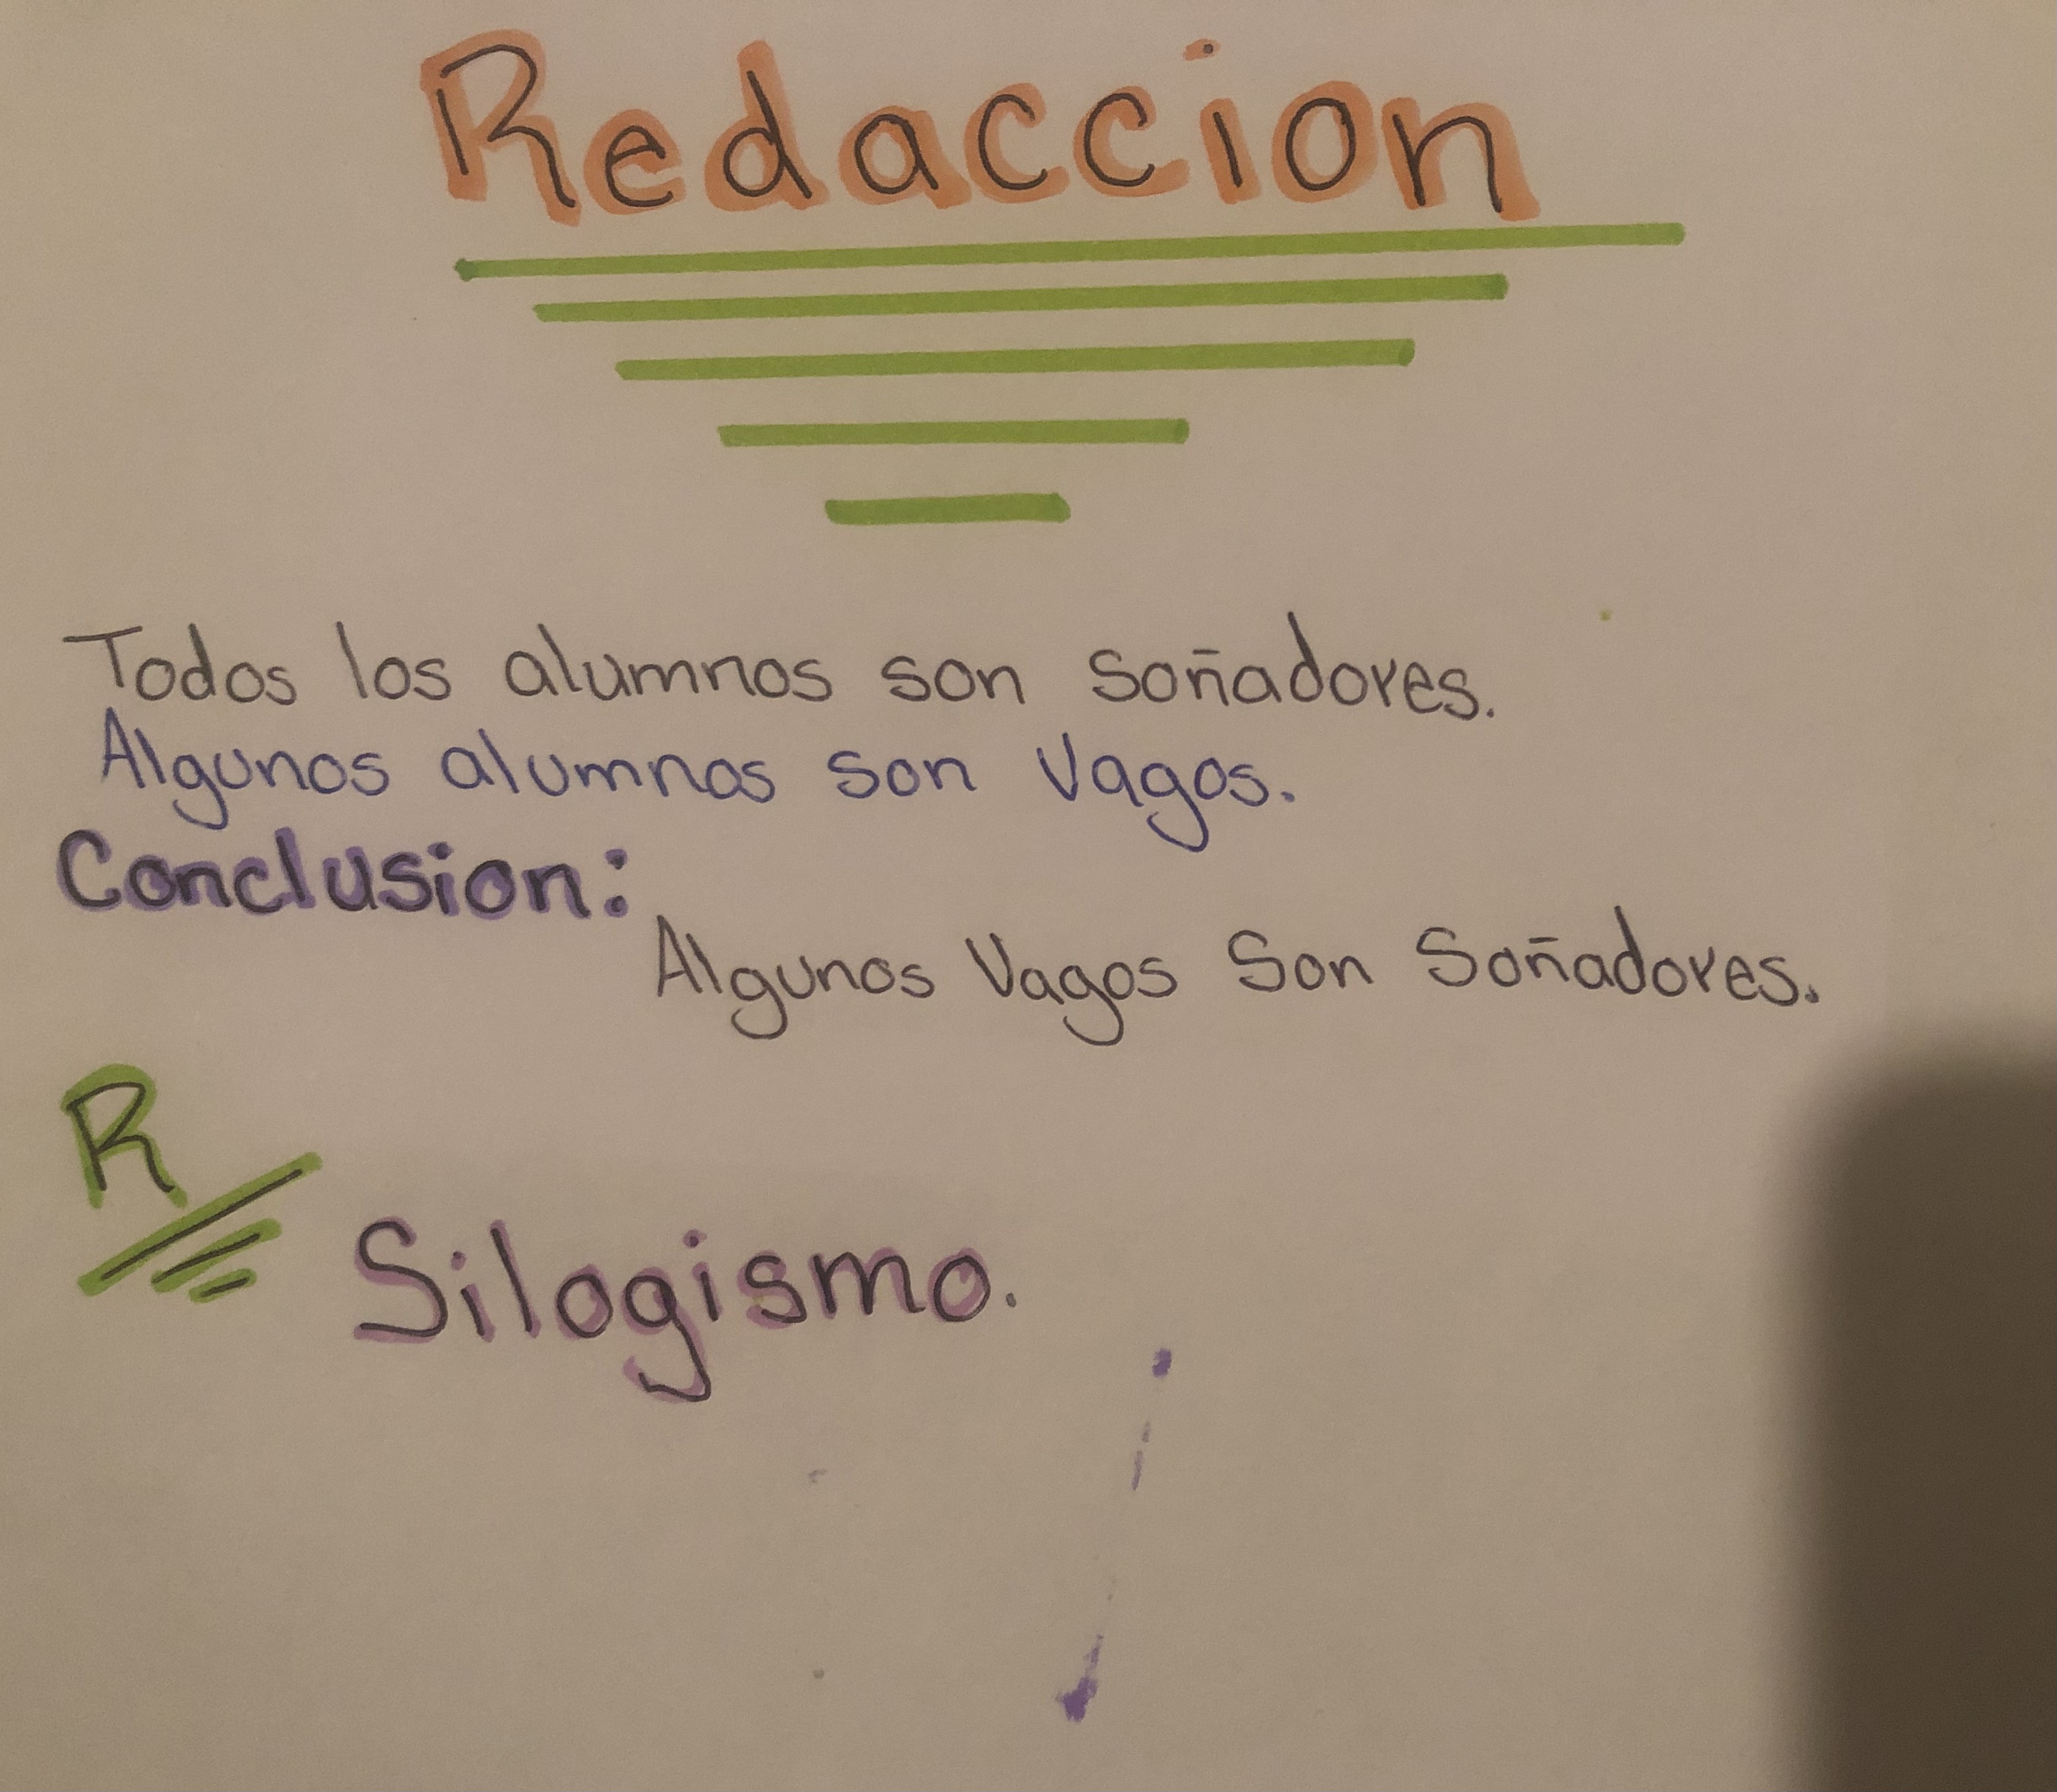 Redaccion
Todos los alumnos son soñadores.
Algunos alumnos son Vagos.
Conclusion:
Algunos Vagos Son Soñadores.
R
Silogismo.